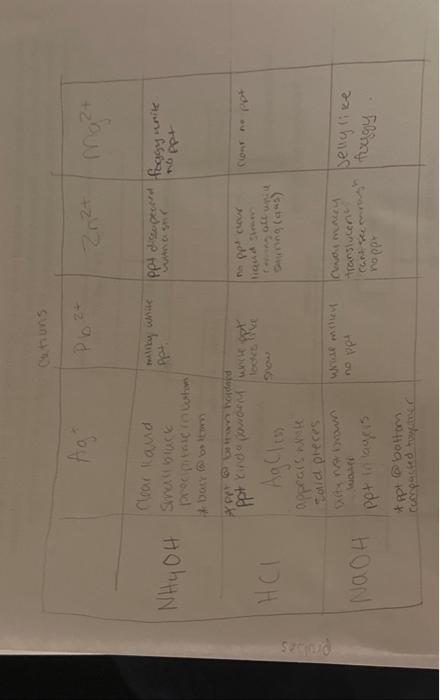 Cations
Ag+
Pb2+
Zn2+
Mg2+
NH4OH
Clear liquid
small black
precipitate in bottom
* black @ bottom
milky white
ppt.
ppt disappeared
with a stir
foggy white
no ppt
HCl
* ppt @ bottom
ppt kinda powdery
AgCl(s)
appears white
solid pieces
white ppt
looks like
snow
no ppt clear
liquid
stirring (gas)
clear no ppt
NaOH
dirty hot brown
water
ppt in layers
* ppt @ bottom
compacted together
white milky
no ppt
cloudy milky
translucent
cant see through
no ppt
Jelly like
foggy.